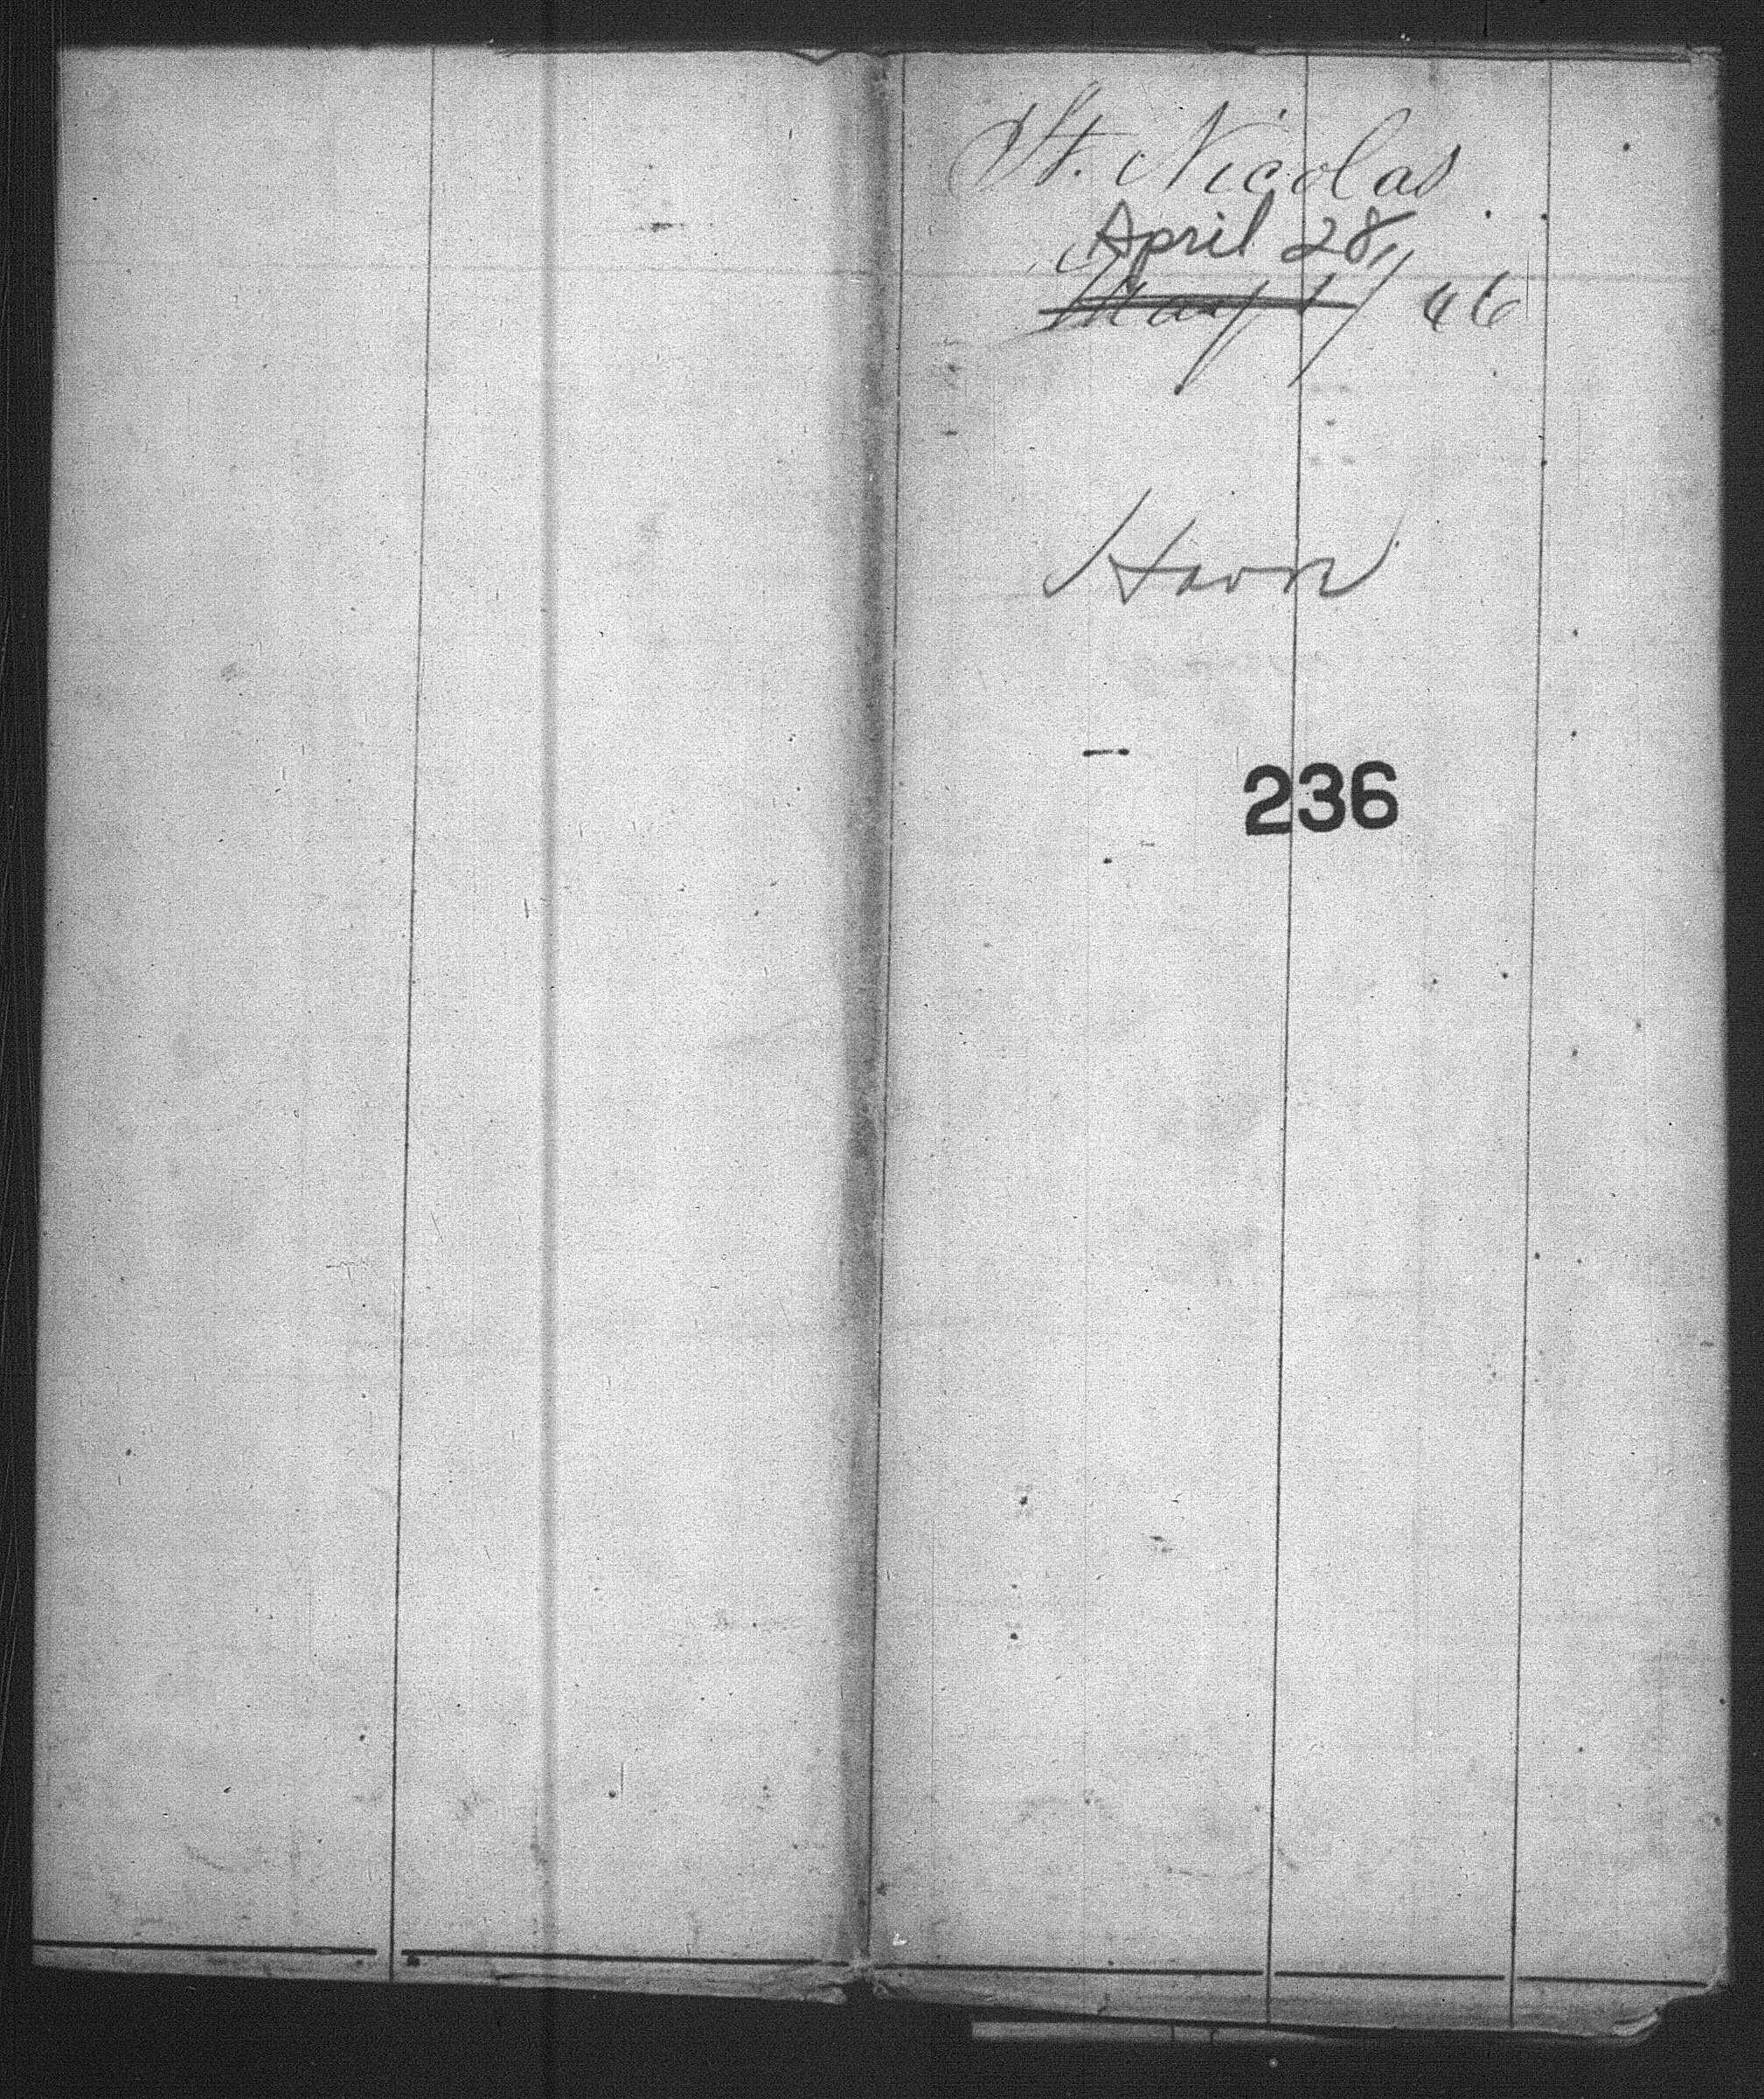 St. Nicolas
April 28,
May 1/46
Havre
236